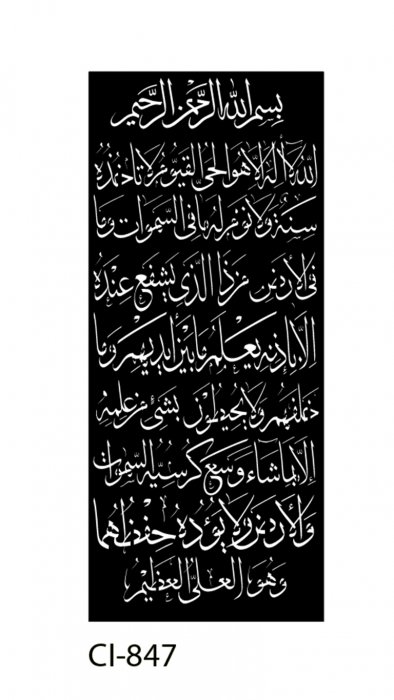 بسم الله الرحمن الرحيم
الله لا اله الا هو الحي القيوم لا تاخذه
سنة ولا نوم له ما في السموات وما
في الارض من ذا الذي يشفع عنده
الا باذنه يعلم ما بين ايديهم وما
خلفهم ولا يحيطون بشئ من علمه
الا بما شاء وسع كرسيه السموات
والارض ولا يؤده حفظهما
وهو العلي العظيم
CI-847